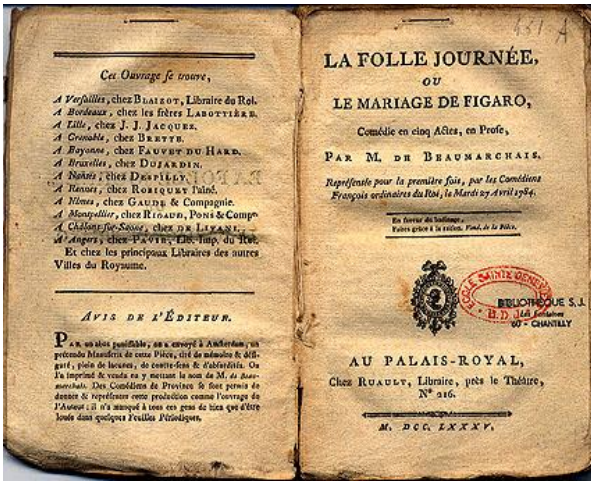 Cet Ouvrage se trouve,
A Versailles, chez BLAIZOT, Libraire du Roi.
A Bordeaux, chez les frères LABOTTIÈRE.
A Lille, chez J. J. JACQUEZ.
A Grenoble, chez BRETTE.
A Bayonne, chez FAUVET DU HARD.
A Bruxelles, chez DUJARDIN.
A Nantes, chez DESPILLY.
A Rennes, chez ROBIQUET l'aîné.
A Nîmes, chez GAUDE & Compagnie.
A Montpellier, chez RIGAUD, PONS & Compe
A Châlons-sur-Saone, chez DE LIVANI.
A Angers, chez PAVIE, Lib. Imp. du Roi.
Et chez les principaux Libraires des autres
Villes du Royaume.
AVIS DE L'ÉDITEUR.
PAR un abus punissable, on a envoyé à Amsterdam, un
prétendu Manuscrit de cette Pièce, tiré de mémoire & défi-
guré, plein de lacunes, de contre-sens & d'absurdités. On
l'a imprimé & vendu en y mettant le nom de M. de Beau-
marchais. Des Comédiens de Province se sont permis de
donner & représenter cette production comme l'ouvrage de
l'Auteur; il n'a manqué à tous ces gens de bien que d'être
loués dans quelques Feuilles Périodiques.
451 A
LA FOLLE JOURNÉE,
OU
LE MARIAGE DE FIGARO,
Comédie en cinq Actes, en Prose,
PAR M. DE BEAUMARCHAIS.
Représentée pour la première fois, par les Comédiens
François ordinaires du Roi, le Mardi 27 Avril 1784.
En faveur du badinage,
Faites grâce à la raison. Vaud. de la Pièce.
ECOLE SAINTE GENEVIEVE
B.D.J.
BIBLIOTHEQUE S.J.
Les Fontaines
60 - CHANTILLY
AU PALAIS-ROYAL,
Chez RUAULT, Libraire, près le Théâtre,
N° 216.
M. DCC. LXXXV.